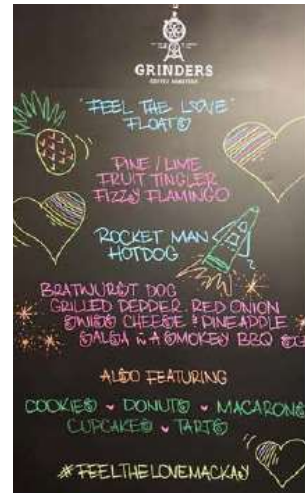 GRINDERS
COFFEE ROASTERS
"FEEL THE LOVE"
FLOATS
PINE / LIME
FRUIT TINGLER
FIZZY FLAMINGO
ROCKET MAN
HOTDOG
BRATWURST DOG
GRILLED PEPPER, RED ONION
SWISS CHEESE & PINEAPPLE
SALSA in A SMOKEY BBQ
ALSO FEATURING
COOKIES DONUTS MACARONS
CUPCAKES TARTS
#FEELTHELOVEMACKAY